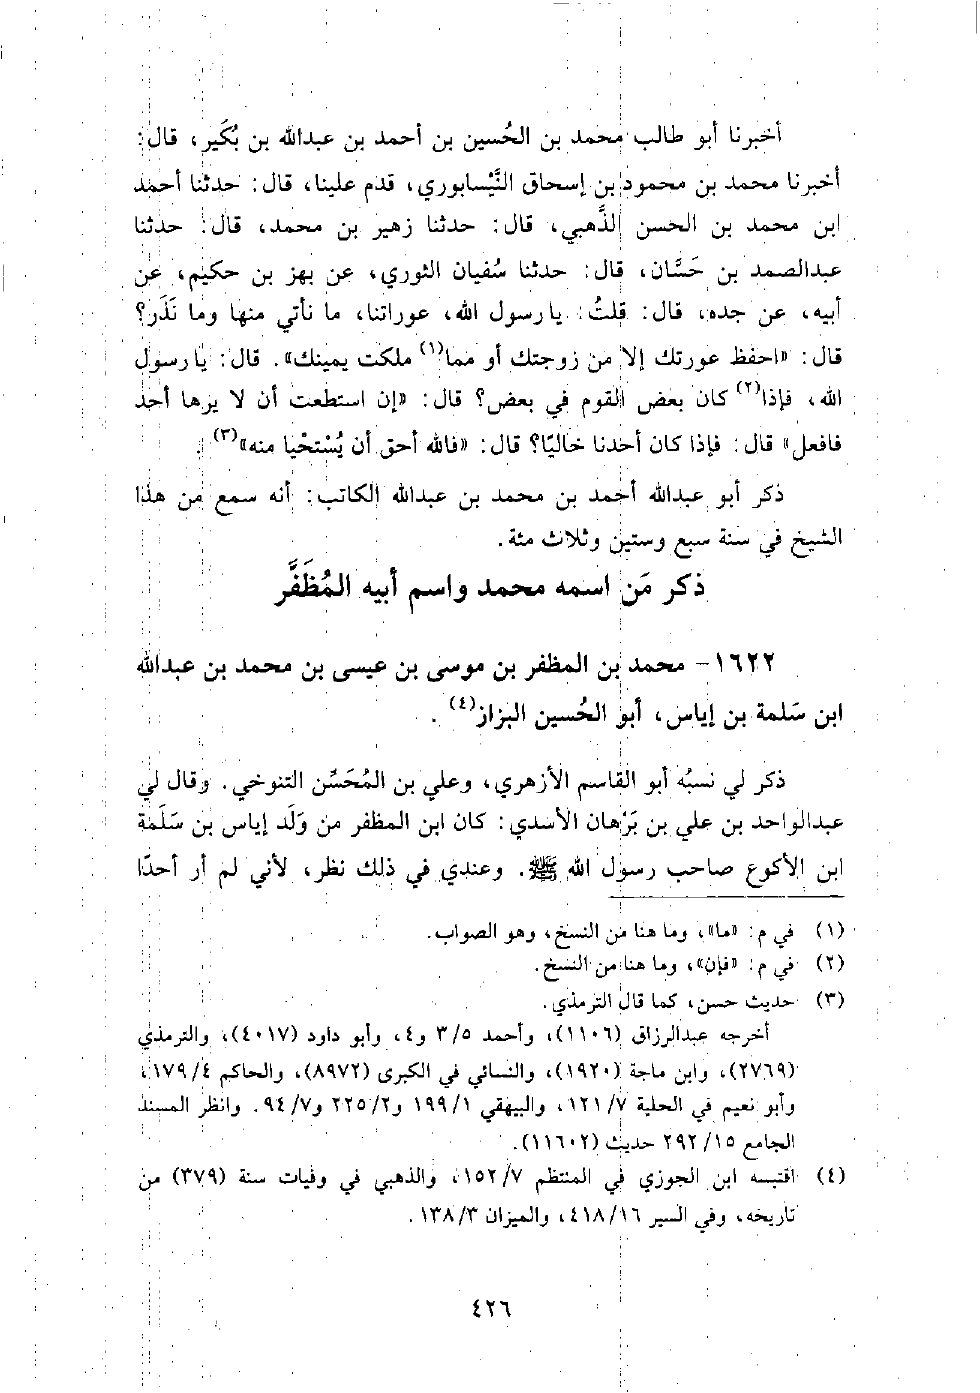 أخبرنا أبو طالب محمد بن الحُسين بن أحمد بن عبدالله بن بُكَير، قال:
أخبرنا محمد بن محمود بن إسحاق النَّيْسابوري، قدم علينا، قال: حدثنا أحمد
ابن محمد بن الحسن الذَّهبي، قال: حدثنا زهير بن محمد، قال: حدثنا
عبدالصمد بن حَسَّان، قال: حدثنا سُفيان الثوري، عن بهز بن حكيم، عن
أبيه، عن جده، قال: قلتُ: يا رسول الله، عوراتنا، ما نأتي منها وما نَذَر؟
قال: «احفظ عورتك إلا من زوجتك أو مما(١) ملكت يمينك». قال: يا رسول
الله، فإذا(٢) كان بعض القوم في بعض؟ قال: «إن استطعت أن لا يرها أحدٌ
فافعل» قال: فإذا كان أحدنا خاليًا؟ قال: «فالله أحق أن يُسْتَحْيا منه»(٣).
ذكر أبو عبدالله أحمد بن محمد بن عبدالله الكاتب: أنه سمع من هذا
الشيخ في سنة سبع وستين وثلاث مئة.
ذكر مَن اسمه محمد واسم أبيه المُظَفَّر
١٦٢٢- محمد بن المظفر بن موسى بن عيسى بن محمد بن عبدالله
ابن سَلمة بن إياس، أبو الحُسين البزاز(٤).
ذكر لي نسبُه أبو القاسم الأزهري، وعلي بن المُحَسِّن التنوخي. وقال لي
عبدالواحد بن علي بن بَرْهان الأسدي: كان ابن المظفر من وَلَد إياس بن سَلَمة
ابن الأكوع صاحب رسول الله ﷺ. وعندي في ذلك نظر، لأني لم أر أحدًا
(١) في م: «ما»، وما هنا من النسخ، وهو الصواب.
(٢) في م: «فإن»، وما هنا من النسخ.
(٣) حديث حسن، كما قال الترمذي.
أخرجه عبدالرزاق (١١٠٦)، وأحمد ٥/ ٣ و٤، وأبو داود (٤٠١٧)، والترمذي
(٢٧٦٩)، وابن ماجة (١٩٢٠)، والنسائي في الكبرى (٨٩٧٢)، والحاكم ٤/ ١٧٩،
وأبو نعيم في الحلية ٧/ ١٢١، والبيهقي ١/ ١٩٩ و٢/ ٢٢٥ و٧/ ٩٤. وانظر المسند
الجامع ١٥/ ٢٩٢ حديث (١١٦٠٢).
(٤) اقتبسه ابن الجوزي في المنتظم ٧/ ١٥٢، والذهبي في وفيات سنة (٣٧٩) من
تاريخه، وفي السير ١٦/ ٤١٨، والميزان ٣/ ١٣٨.
٤٢٦